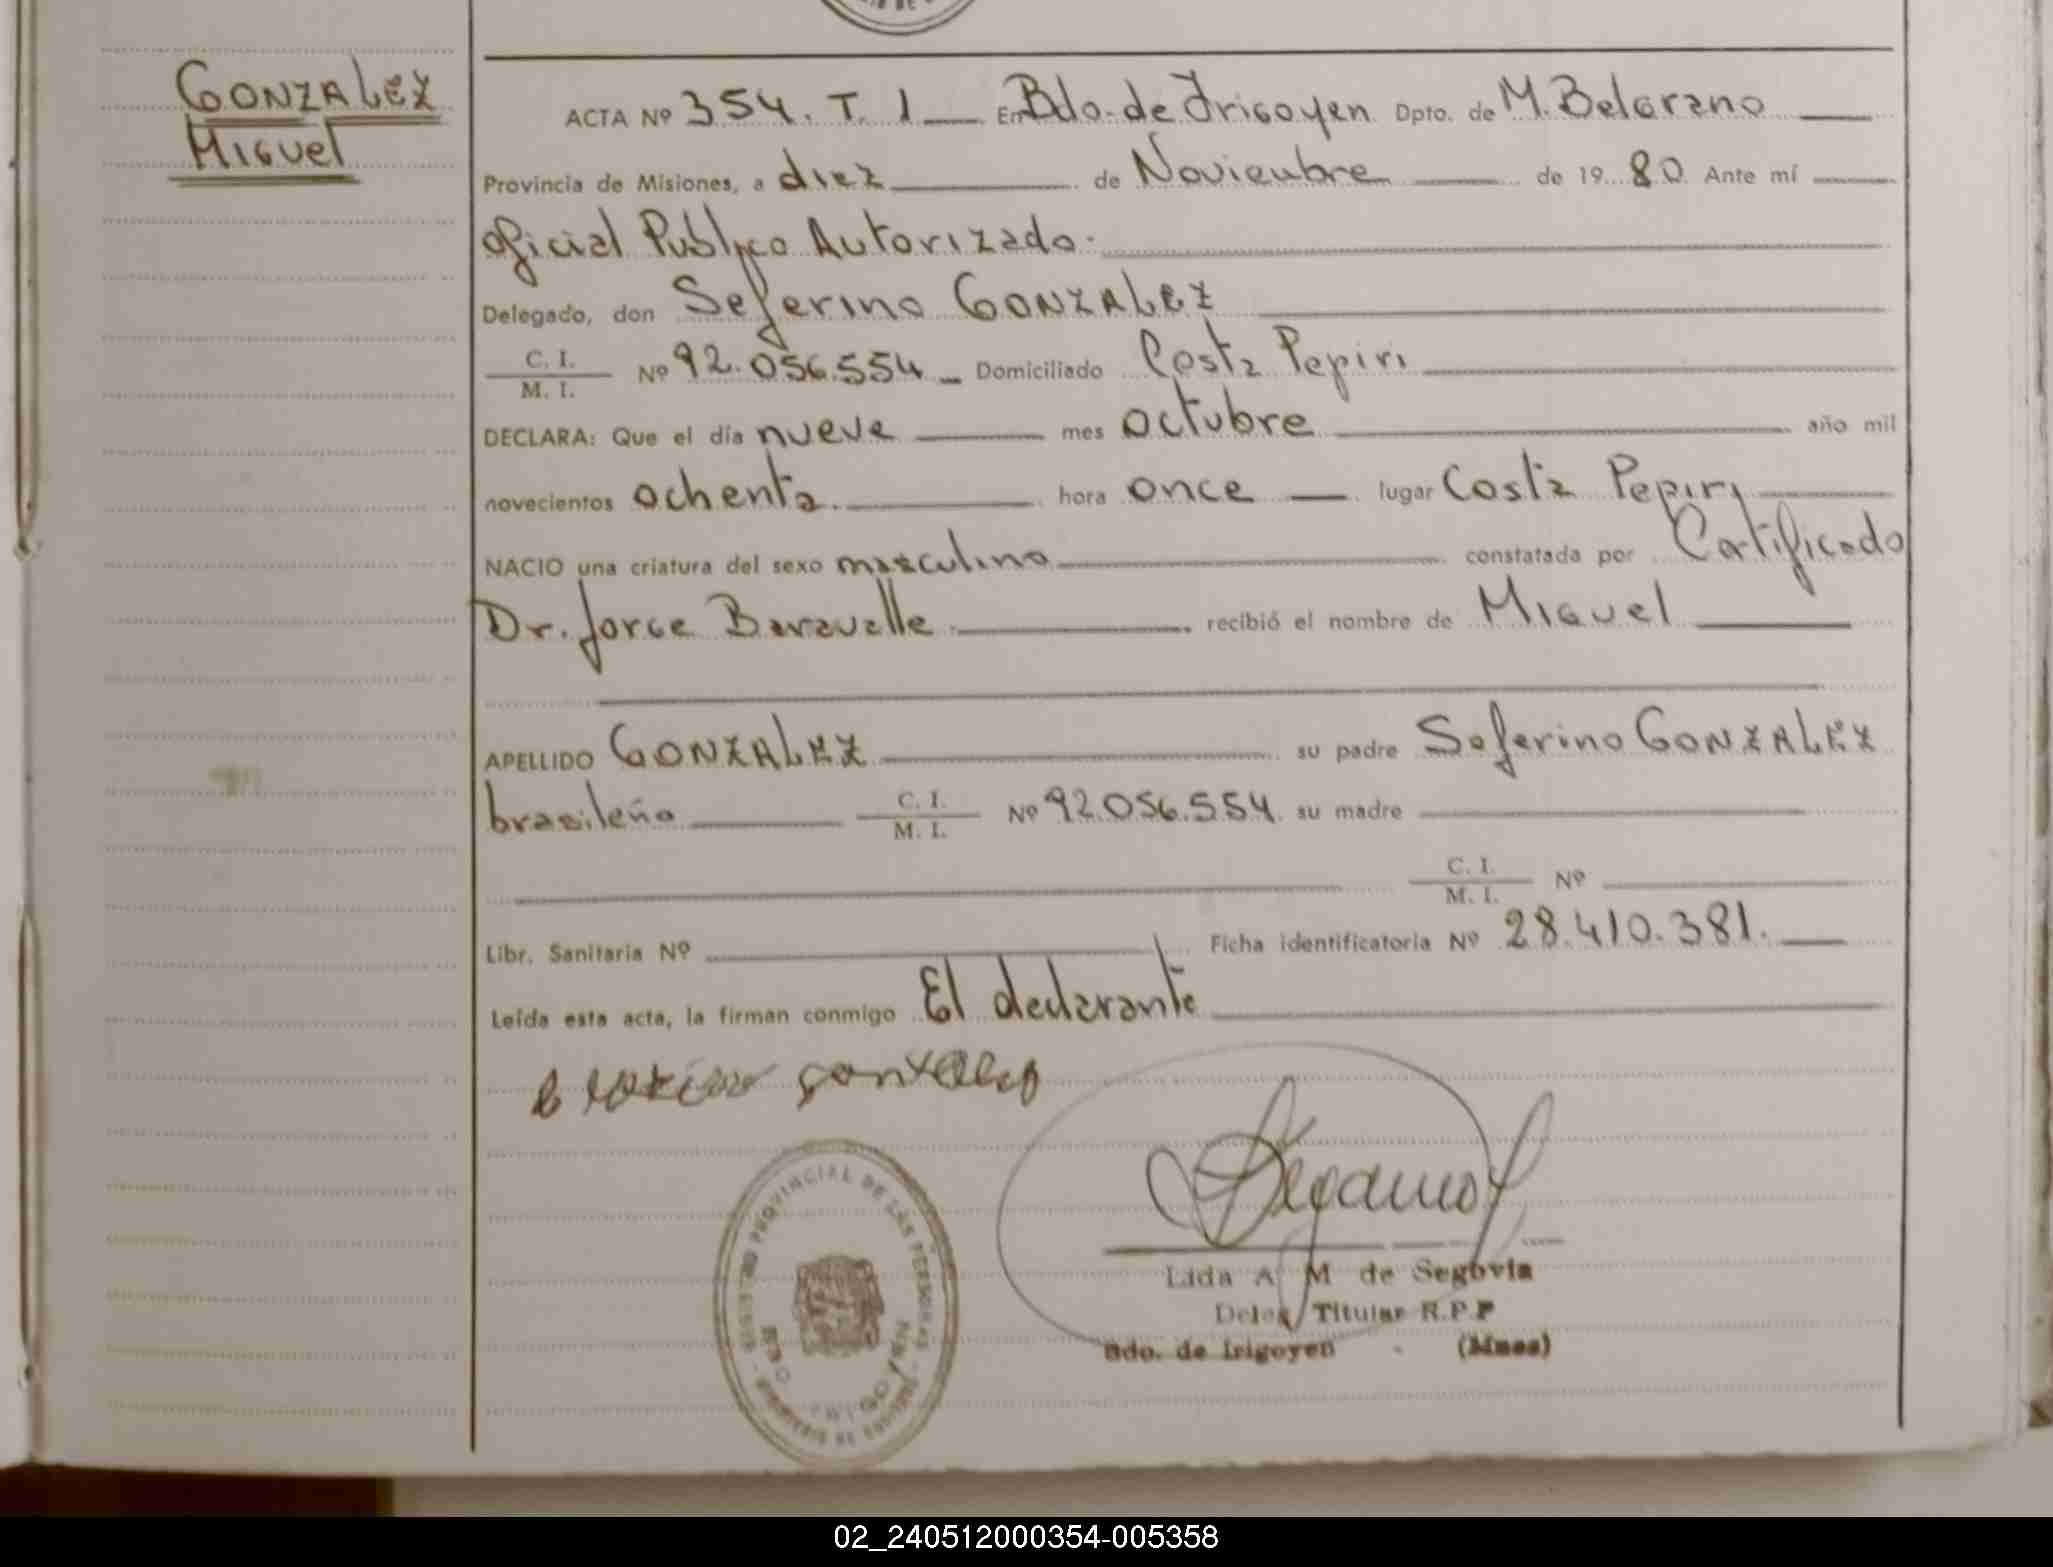 GONZALEZ
Miguel
ACTA Nº 354. T. 1 En Bdo. de Irigoyen Dpto. de M. Belgrano
Provincia de Misiones, a diez de Noviembre de 1980 Ante mí
Oficial Publico Autorizado.
Delegado, don Seferino GONZALEZ
C. I.
M. I. Nº 92.056.554 Domiciliado Costa Pepiri
DECLARA: Que el día nueve mes octubre año mil
novecientos ochenta. hora once lugar Costa Pepiri
NACIO una criatura del sexo masculino constatada por Certificado
Dr. Jorge Baravalle recibió el nombre de Miguel
APELLIDO GONZALEZ su padre Seferino GONZALEZ
brasileño C. I.
M. I. Nº 92.056.554 su madre
C. I.
M. I. Nº
Libr. Sanitaria Nº Ficha identificatoria Nº 28.410.381.
Leída esta acta, la firman conmigo El declarante
PROVINCIAL DE LAS PERSONAS
Lida A M de Segovia
Deleg Titular R.P.P
Bdo. de Irigoyen - (Mnes)
02_240512000354-005358